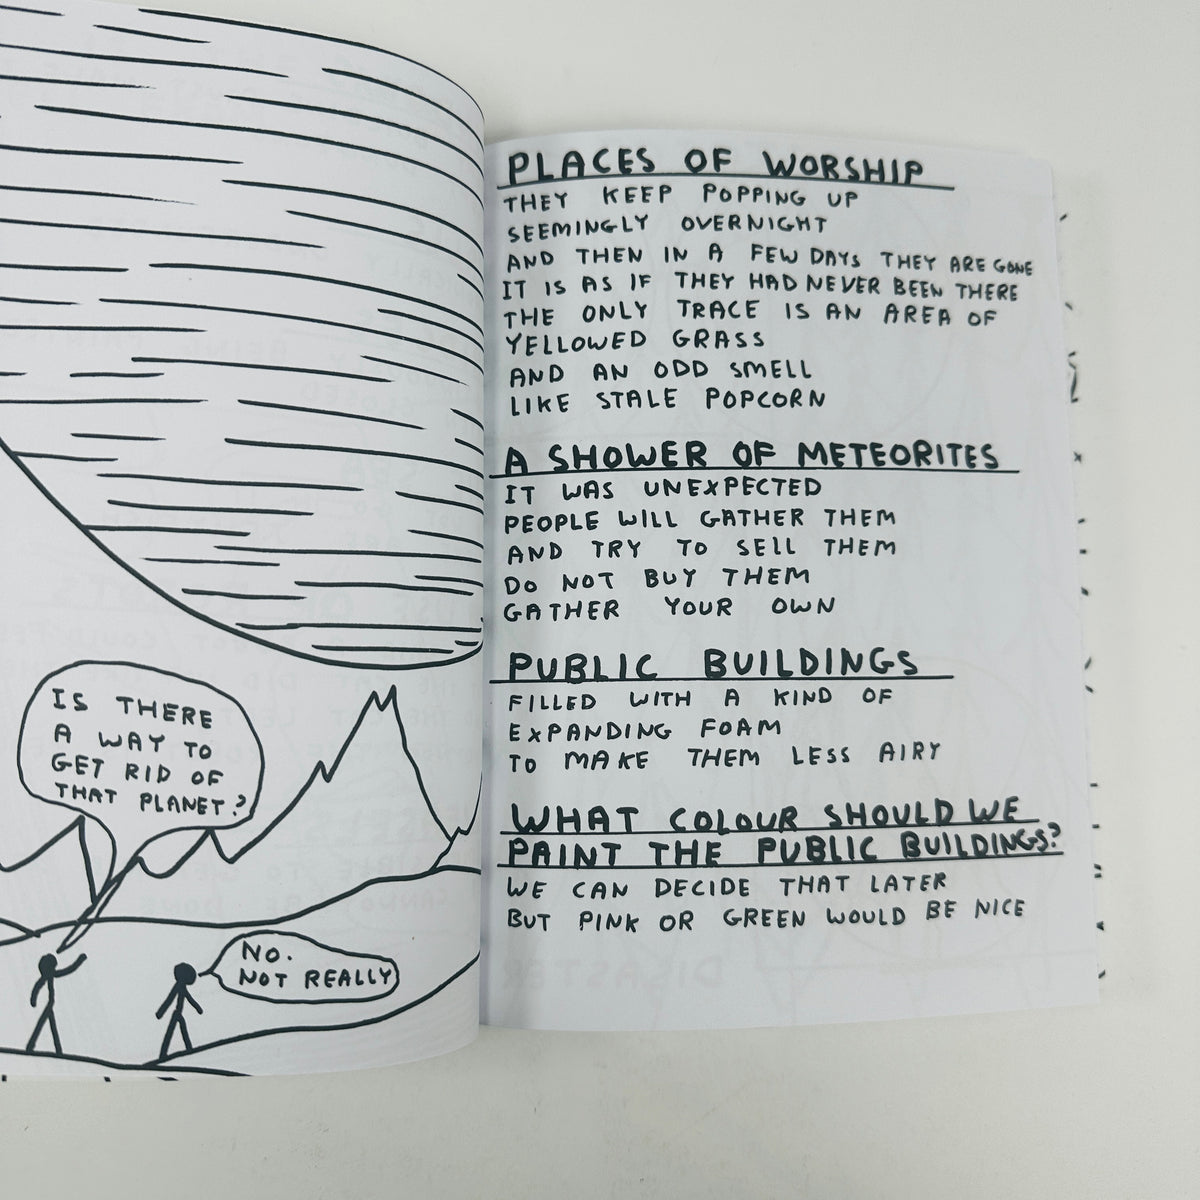 IS THERE
A WAY TO
GET RID OF
THAT PLANET?
NO.
NOT REALLY
PLACES OF WORSHIP
THEY KEEP POPPING UP
SEEMINGLY OVERNIGHT
AND THEN IN A FEW DAYS THEY ARE GONE
IT IS AS IF THEY HAD NEVER BEEN THERE
THE ONLY TRACE IS AN AREA OF
YELLOWED GRASS
AND AN ODD SMELL
LIKE STALE POPCORN
A SHOWER OF METEORITES
IT WAS UNEXPECTED
PEOPLE WILL GATHER THEM
AND TRY TO SELL THEM
DO NOT BUY THEM
GATHER YOUR OWN
PUBLIC BUILDINGS
FILLED WITH A KIND OF
EXPANDING FOAM
TO MAKE THEM LESS AIRY
WHAT COLOUR SHOULD WE
PAINT THE PUBLIC BUILDINGS?
WE CAN DECIDE THAT LATER
BUT PINK OR GREEN WOULD BE NICE